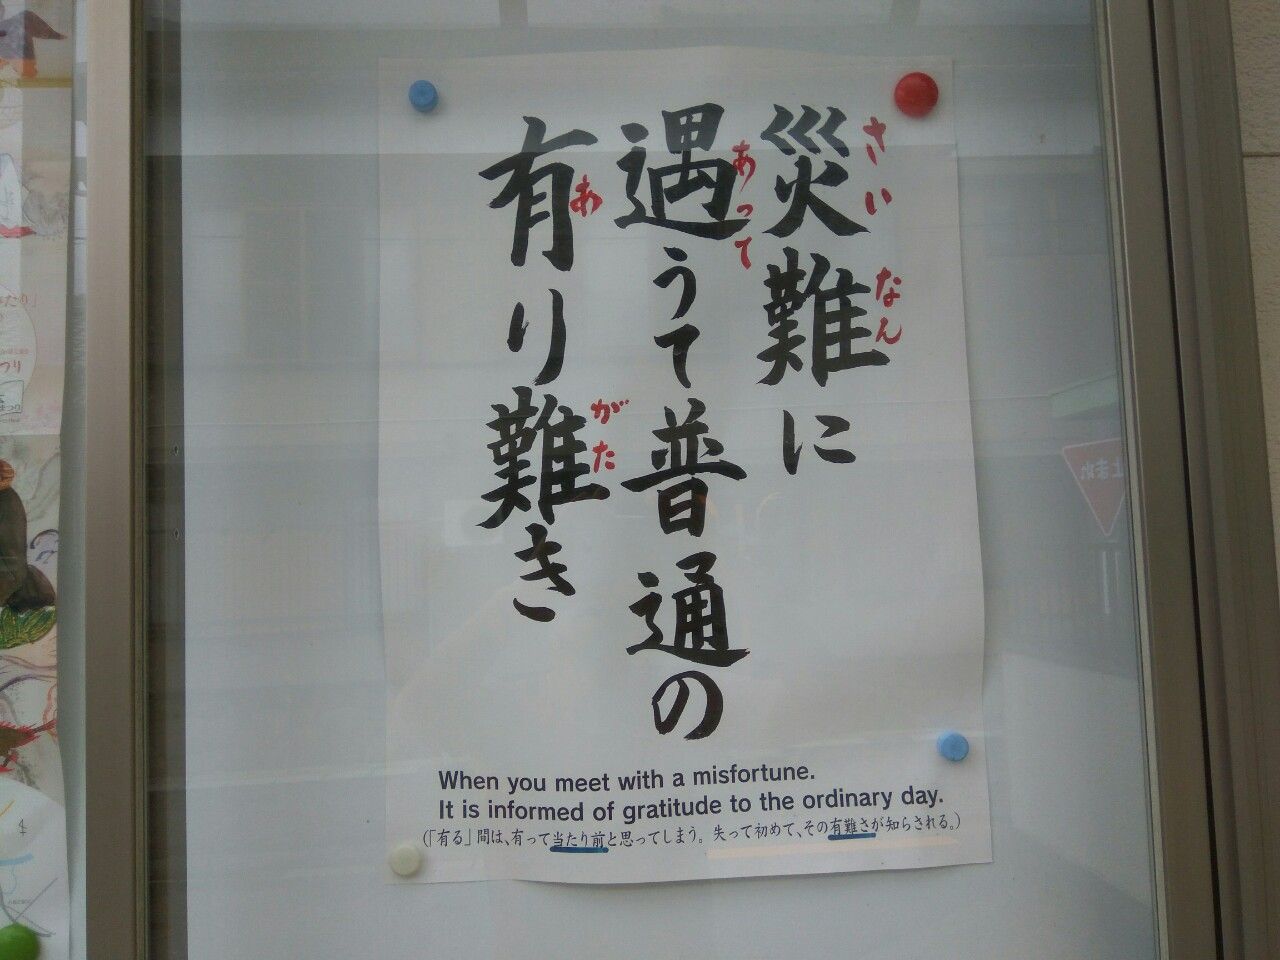 災難に
さいなん
遇うて普通の
あって
有り難き
あ がた
When you meet with a misfortune.
It is informed of gratitude to the ordinary day.
(「有る」間は、有って当たり前と思ってしまう。失って初めて、その有難さが知らされる。)